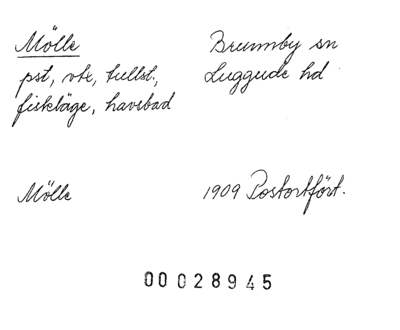 Mölle
Brunnby sn
pst, vbe, tullst.,
Luggude hd
fiskläge, havsbad
Mölle
1909 Postortfört.
00028945